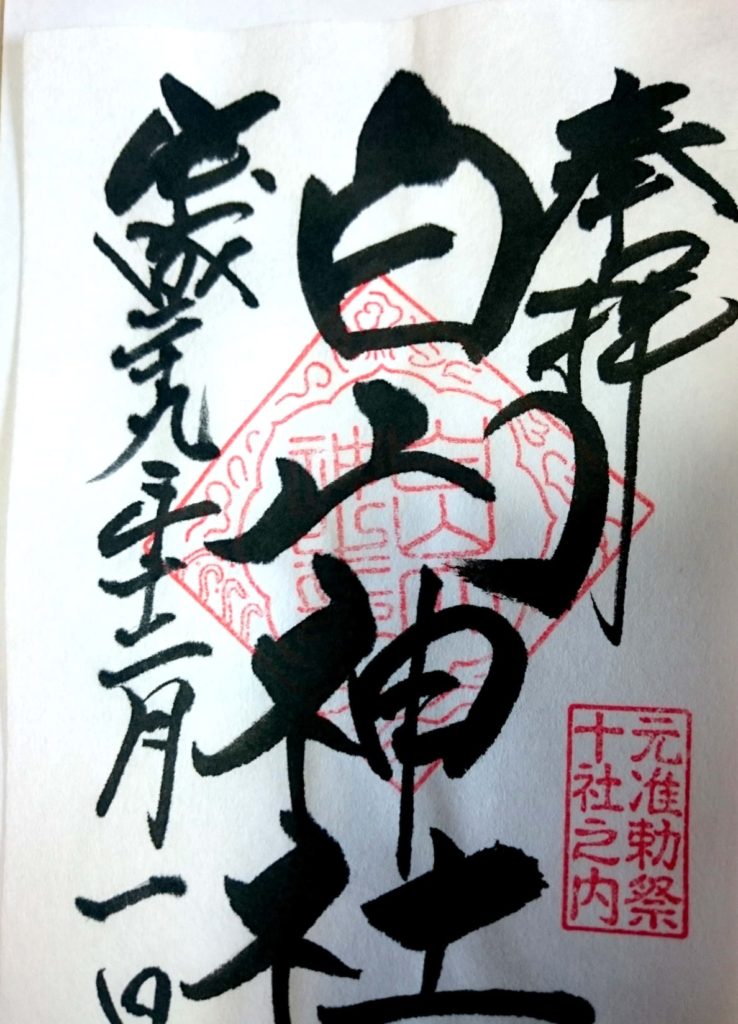 奉拝
元准勅祭
十社之内
白山神社
平成二十九年十二月一日